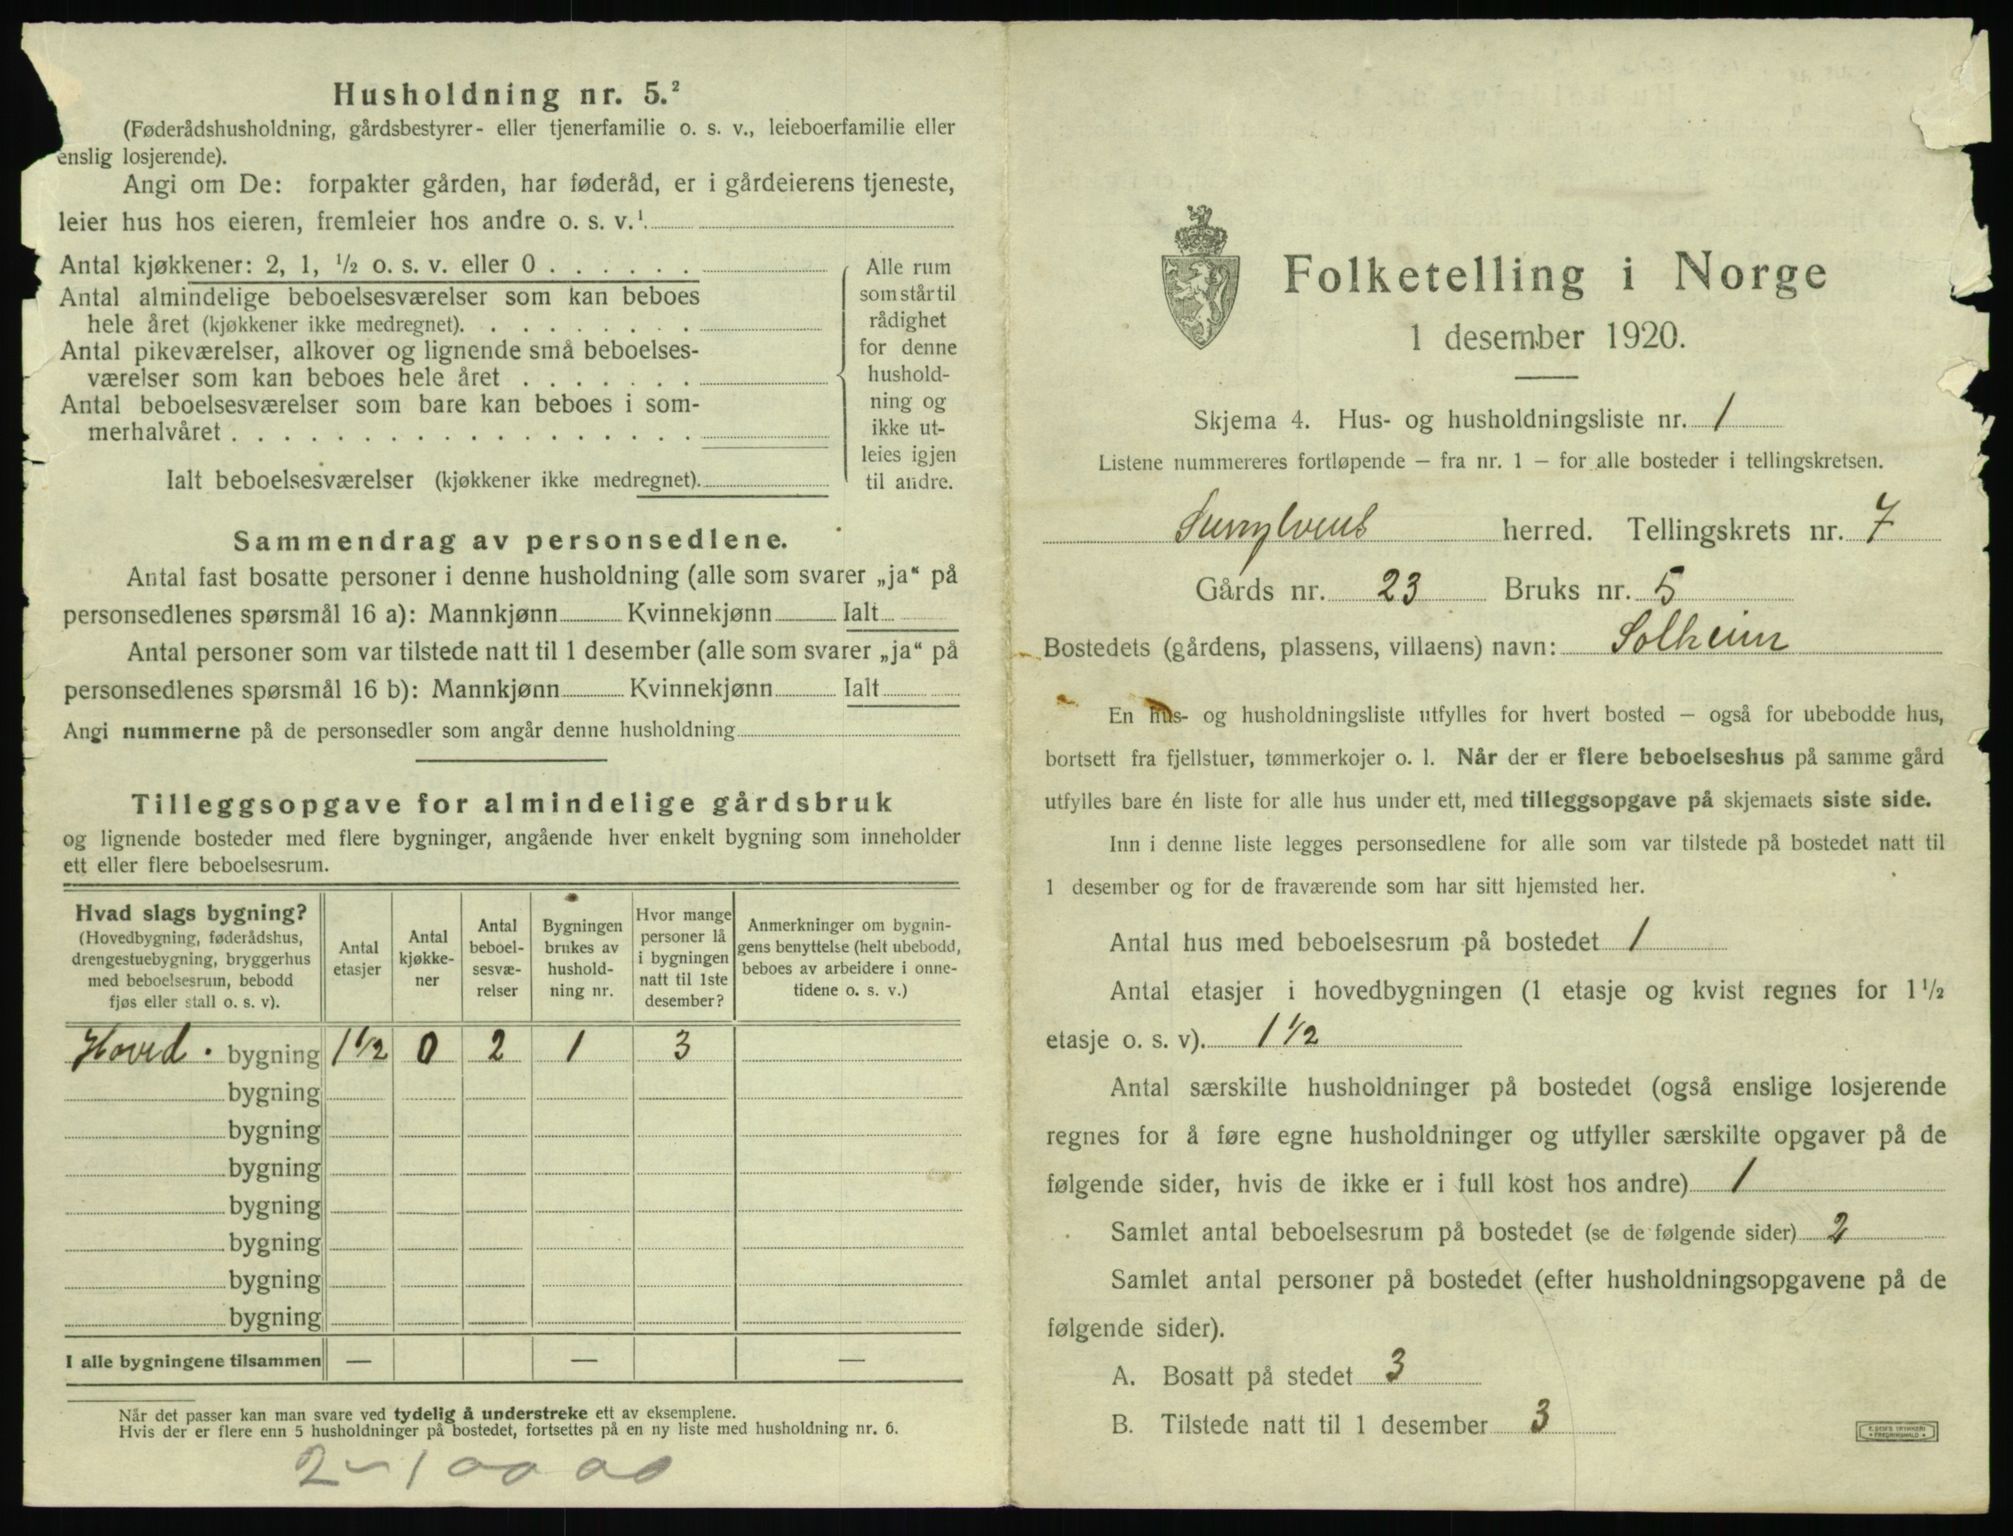 Husholdning nr. 5.²
(Føderådshusholdning, gårdsbestyrer- eller tjenerfamilie o. s. v., leieboerfamilie eller
enslig losjerende).
Angi om De: forpakter gården, har føderåd, er i gårdeierens tjeneste,
leier hus hos eieren, fremleier hos andre o. s. v.¹
Antal kjøkkener: 2, 1, ½ o. s. v. eller 0
Antal almindelige beboelsesværelser som kan beboes
hele året (kjøkkener ikke medregnet).
Antal pikeværelser, alkover og lignende små beboelses-
værelser som kan beboes hele året
Antal beboelsesværelser som bare kan beboes i som-
merhalvåret
Ialt beboelsesværelser (kjøkkener ikke medregnet).
Alle rum
som står til
rådighet
for denne
hushold-
ning og
ikke ut-
leies igjen
til andre.
Sammendrag av personsedlene.
Antal fast bosatte personer i denne husholdning (alle som svarer „ja“ på
personsedlenes spørsmål 16 a): Mannkjønn Kvinnekjønn Ialt
Antal personer som var tilstede natt til 1 desember (alle som svarer „ja“ på
personsedlenes spørsmål 16 b): Mannkjønn Kvinnekjønn Ialt
Angi nummerne på de personsedler som angår denne husholdning
Tilleggsopgave for almindelige gårdsbruk
og lignende bosteder med flere bygninger, angående hver enkelt bygning som inneholder
ett eller flere beboelsesrum.
Hvad slags bygning?
(Hovedbygning, føderådshus,
drengestuebygning, bryggerhus
med beboelsesrum, bebodd
fjøs eller stall o. s. v).
Antal
etasjer
Antal
kjøkke-
ner
Antal
beboel-
sesvæ-
relser
Bygningen
brukes av
hushold-
ning nr.
Hvor mange
personer lå
i bygningen
natt til 1ste
desember?
Anmerkninger om bygnin-
gens benyttelse (helt ubebodd,
beboes av arbeidere i onne-
tidene o. s. v.)
Hoved bygning 1 ½ 0 2 1 3
bygning
bygning
bygning
bygning
bygning
bygning
bygning
I alle bygningene tilsammen — — —
Når det passer kan man svare ved tydelig å understreke ett av eksemplene.
Hvis der er flere enn 5 husholdninger på bostedet, fortsettes på en ny liste med husholdning nr. 6.
Folketelling i Norge
1 desember 1920.
Skjema 4. Hus- og husholdningsliste nr. 1
Listene nummereres fortløpende – fra nr. 1 – for alle bosteder i tellingskretsen.
Sunnylvens herred. Tellingskrets nr. 7
Gårds nr. 23 Bruks nr. 5
Bostedets (gårdens, plassens, villaens) navn: Solheim
En hus- og husholdningsliste utfylles for hvert bosted – også for ubebodde hus,
bortsett fra fjellstuer, tømmerkojer o. l. Når der er flere beboelseshus på samme gård
utfylles bare én liste for alle hus under ett, med tilleggsopgave på skjemaets siste side.
Inn i denne liste legges personsedlene for alle som var tilstede på bostedet natt til
1 desember og for de fraværende som har sitt hjemsted her.
Antal hus med beboelsesrum på bostedet 1
Antal etasjer i hovedbygningen (1 etasje og kvist regnes for 1½
etasje o. s. v). 1 ½
Antal særskilte husholdninger på bostedet (også enslige losjerende
regnes for å føre egne husholdninger og utfyller særskilte opgaver på de
følgende sider, hvis de ikke er i full kost hos andre) 1
Samlet antal beboelsesrum på bostedet (se de følgende sider) 2
Samlet antal personer på bostedet (efter husholdningsopgavene på de
følgende sider).
A. Bosatt på stedet 3
B. Tilstede natt til 1 desember 3